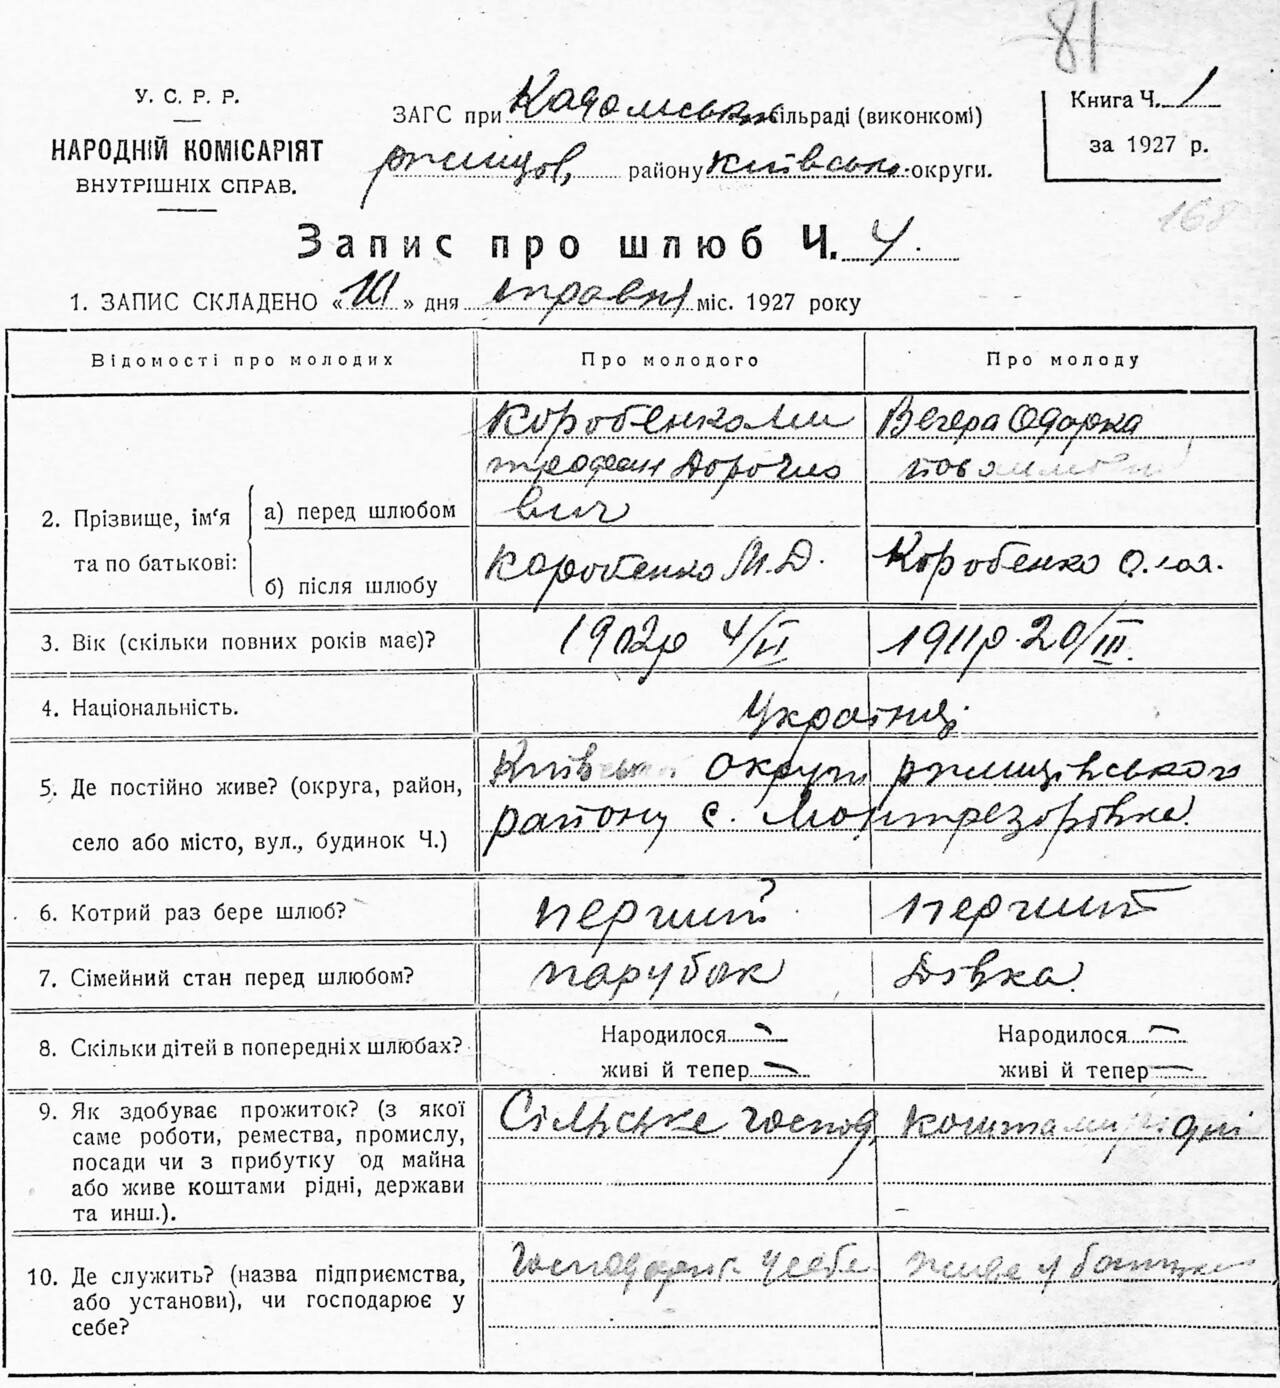 81
У. С. Р. Р.
НАРОДНІЙ КОМІСАРІЯТ
ВНУТРІШНІХ СПРАВ.
ЗАГС при сільраді (виконкомі)
району Київсько округи.
Книга Ч. 1
за 1927 р.
168
Запис про шлюб Ч. 4.
1. ЗАПИС СКЛАДЕНО « 10 » дня травня міс. 1927 року
Відомості про молодих Про молодого Про молоду
2. Прізвище, ім‘я та по батькові:
а) перед шлюбом
Коробенко Ми
трофан Дорочио
вич
Вегера Одарка
б) після шлюбу
Коробенко М.Д.
Коробенко О.
3. Вік (скільки повних років має)? 1902р 4/II 1911р. 20/III.
4. Національність. Українці
5. Де постійно живе? (округа, район,
село або місто, вул., будинок Ч.)
Київської округи ржищівського
району с. Монтрезорівка.
6. Котрий раз бере шлюб? перший перший
7. Сімейний стан перед шлюбом? парубок Дівка
8. Скільки дітей в попередніх шлюбах?
Народилося - Народилося -
живі й тепер - живі й тепер -
9. Як здобуває прожиток? (з якої
саме роботи, ремества, промислу,
посади чи з прибутку од майна
або живе коштами рідні, держави
та инш.).
Сільське господ. коштами рідні
10. Де служить? (назва підприємства,
або установи), чи господарює у
себе?
Господарює у себе живе у батька